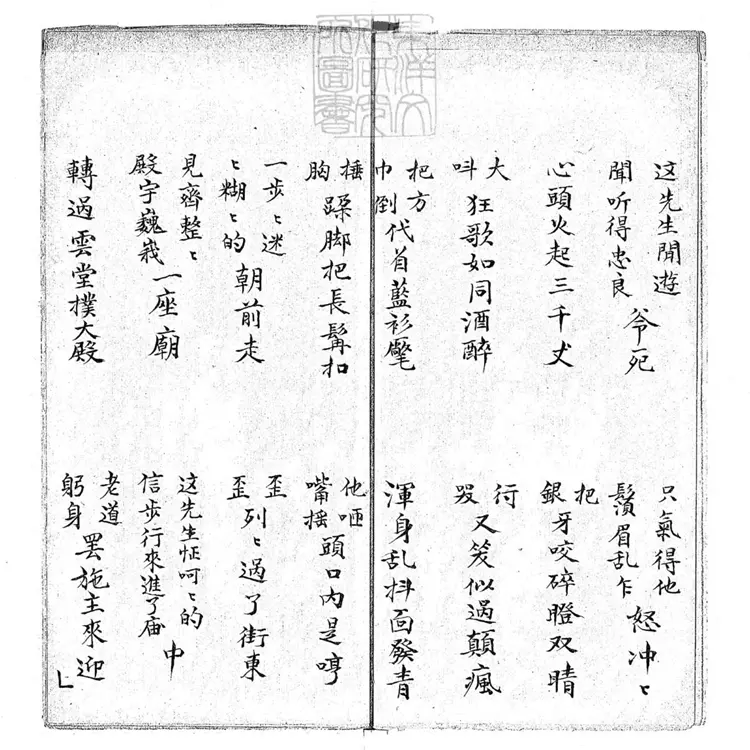 东洋文化研究所圖書
这先生閒遊聞听得忠良爷死
只氣得他鬚眉乱乍怒冲〻
心頭火起三千丈
把銀牙咬碎瞪双睛
大呌狂歌如同酒醉
行又笑似過顛瘋
把方巾倒代首藍衫氅
渾身乱抖面發青
捶胸蹂脚把長髯扣
他咂嘴摇頭口内是哼
一步〻迷〻糊〻的朝前走
歪歪列〻過了街東
見齊整〻殿宇巍峩一座廟
这先生怔呵〻的信步行來進了庙中
轉過雲堂撲大殿
老道躬身罢施主來迎